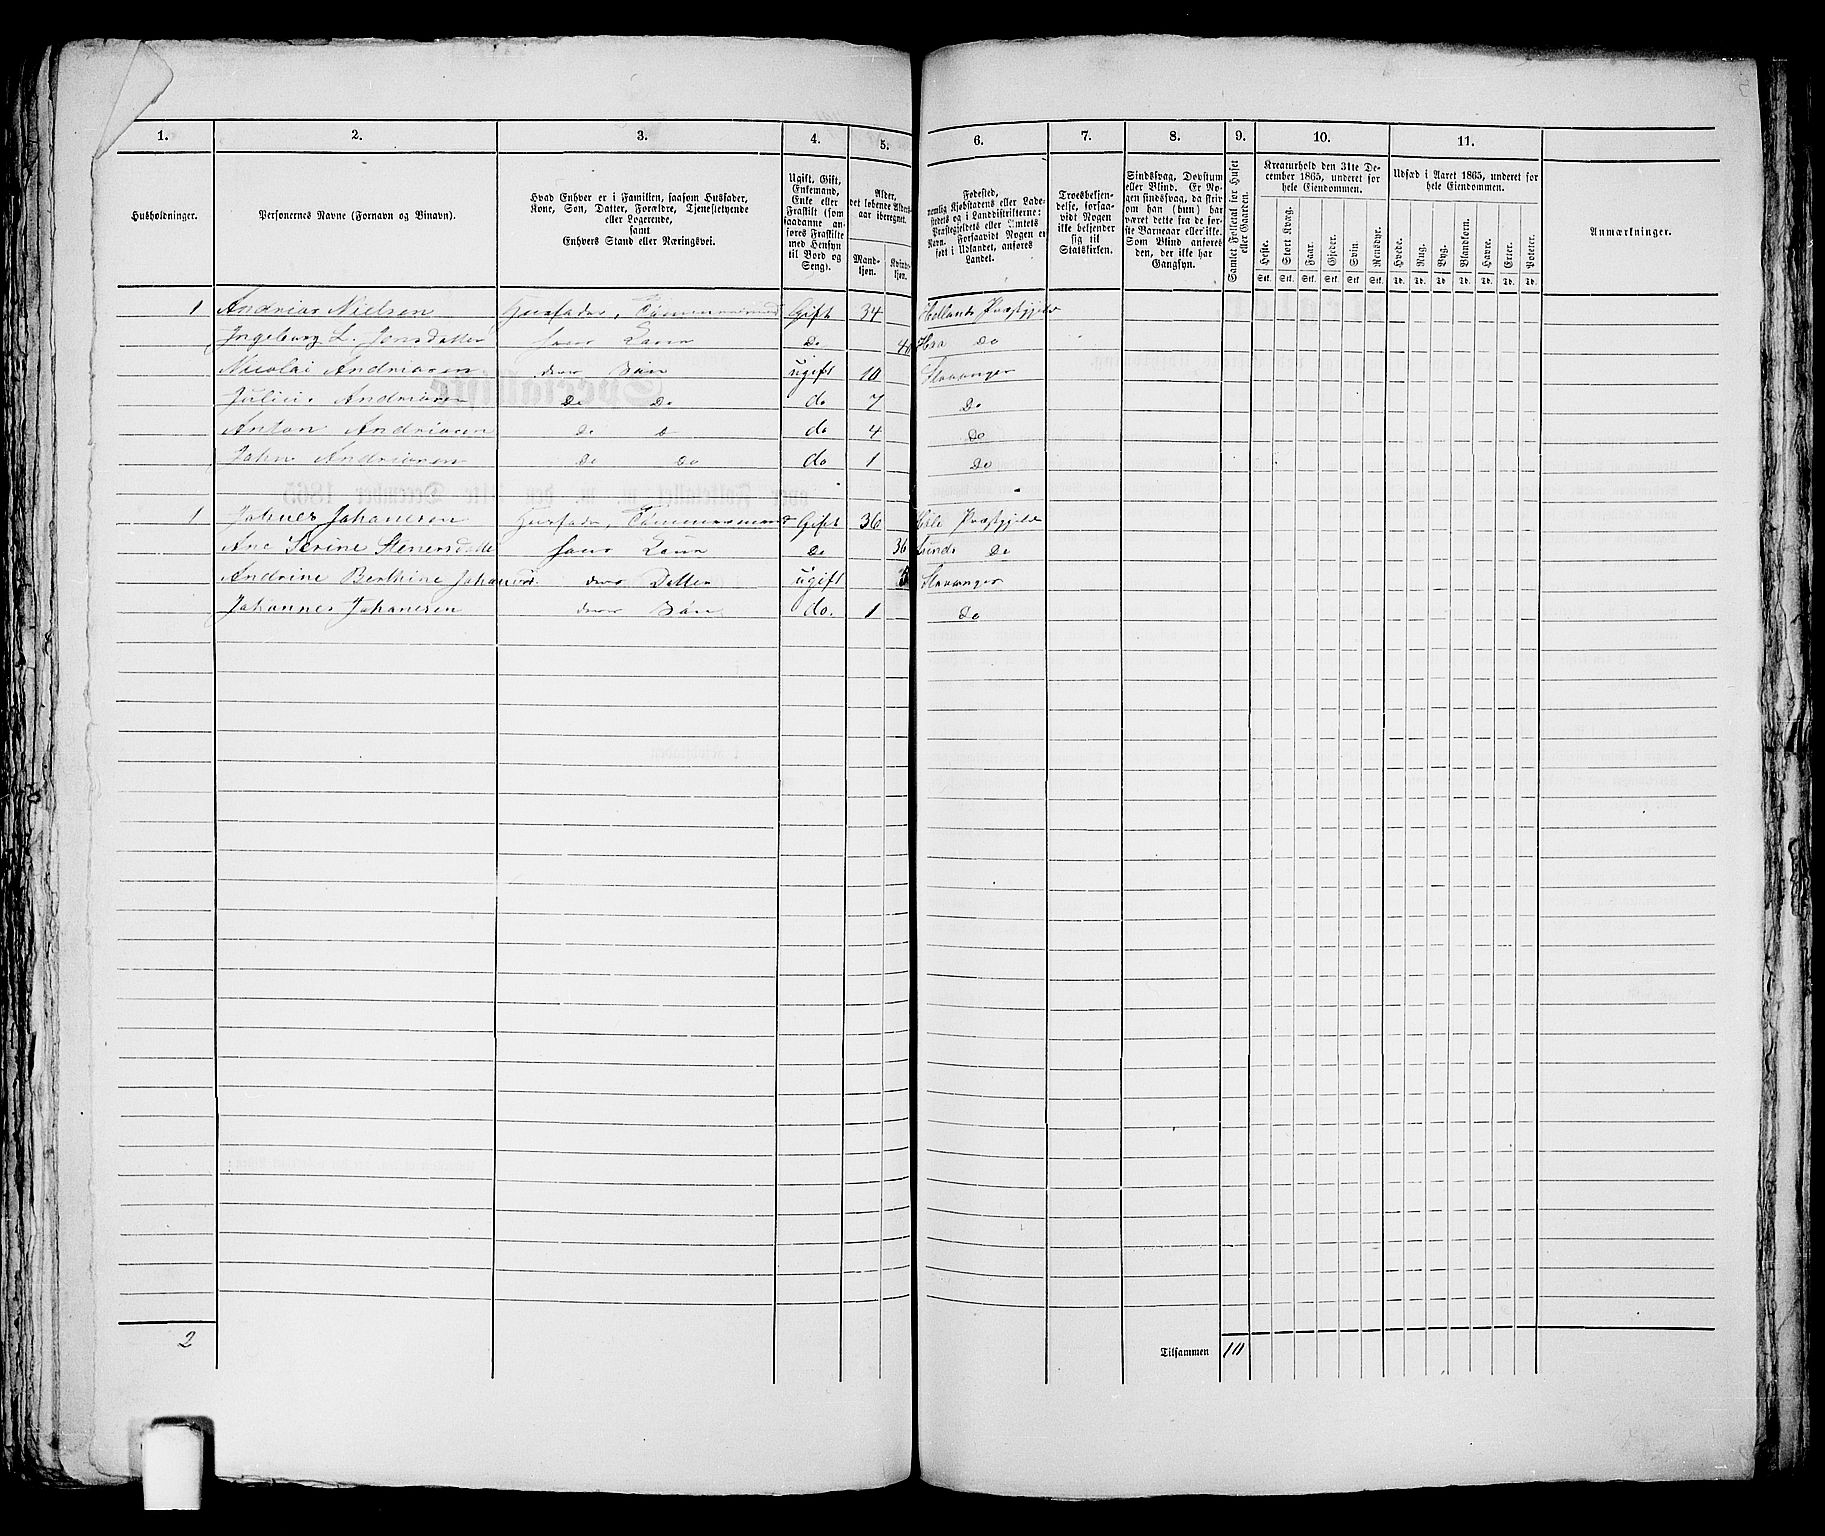 1. 2. 3. 4. 5. 6. 7. 8. 9. 10. 11.
Husholdninger.
Personernes Navne (Fornavn og Binavn).
Hvad Enhver er i Familien, saasom Husfader,
Kone, Søn, Datter, Forældre, Tjenestetyende
eller Logerende,
samt
Enhvers Stand eller Næringsvei.
Ugift, Gift,
Enkemand,
Enke eller
Fraskilt (som
saadanne an-
føres Fraskilte
med Hensyn
til Bord og
Seng).
Alder,
det løbende Alders-
aar iberegnet.
Mand-
kjøn.
Kvind-
kjøn.
Fødested,
nemlig Kjøbstadens eller Lade-
stedets og i Landdistrikterne:
Præstegjeldets eller Amtets
Navn. Forsaavidt Nogen er
født i Udlandet, anføres
Landet.
Troesbekjen-
delse, forsaa-
vidt Nogen
ikke bekjender
sig til
Statskirken.
Sindssvag, Døvstum
eller Blind. Er No-
gen sindssvag, da skriv
om han (hun) har
været dette fra de før-
ste Barneaar eller ikke.
Som Blind anføres
den, der ikke har
Gangsyn.
Samlet Folketal for Huset
eller Gaarden.
Kreaturhold den 31te De-
cember 1865, underet for
hele Eiendommen.
Heste. Stort Kvæg. Faar. Gjeder. Svin. Rensdyr.
Stk. Stk. Stk. Stk. Stk. Stk.
Udsæd i Aaret 1865, underet for
hele Eiendommen.
Hvede. Rug. Byg. Blandkorn. Havre. Erter. Poteter.
Td. Td. Td. Td. Td. Td. Td.
Anmærkninger.
1 Andrias Nielsen Husfader, Tømmermand Gift 34 Hellands Præstgjeld
Ingeborg L. Jensdatter hans Kone Do 40 Haa Do
Nicolai Andriasen deres Søn ugift 10 Stavanger
Julius Andriasen Do Do do 7 Do
Anton Andriasen Do Do do 4 Do
John Andriasen Do Do do 1 Do
1 Johnes Johanesen Husfader, Tømmermand Gift 36 Præstgjeld
Ane Serine Stenersdatter hans Kone Do 36 Lunds Do
Andrine Berthine Johanesd. deres Datter ugift Stavanger
Johannes Johanesen deres Søn do. 1 Do
2
Tilsammen 10